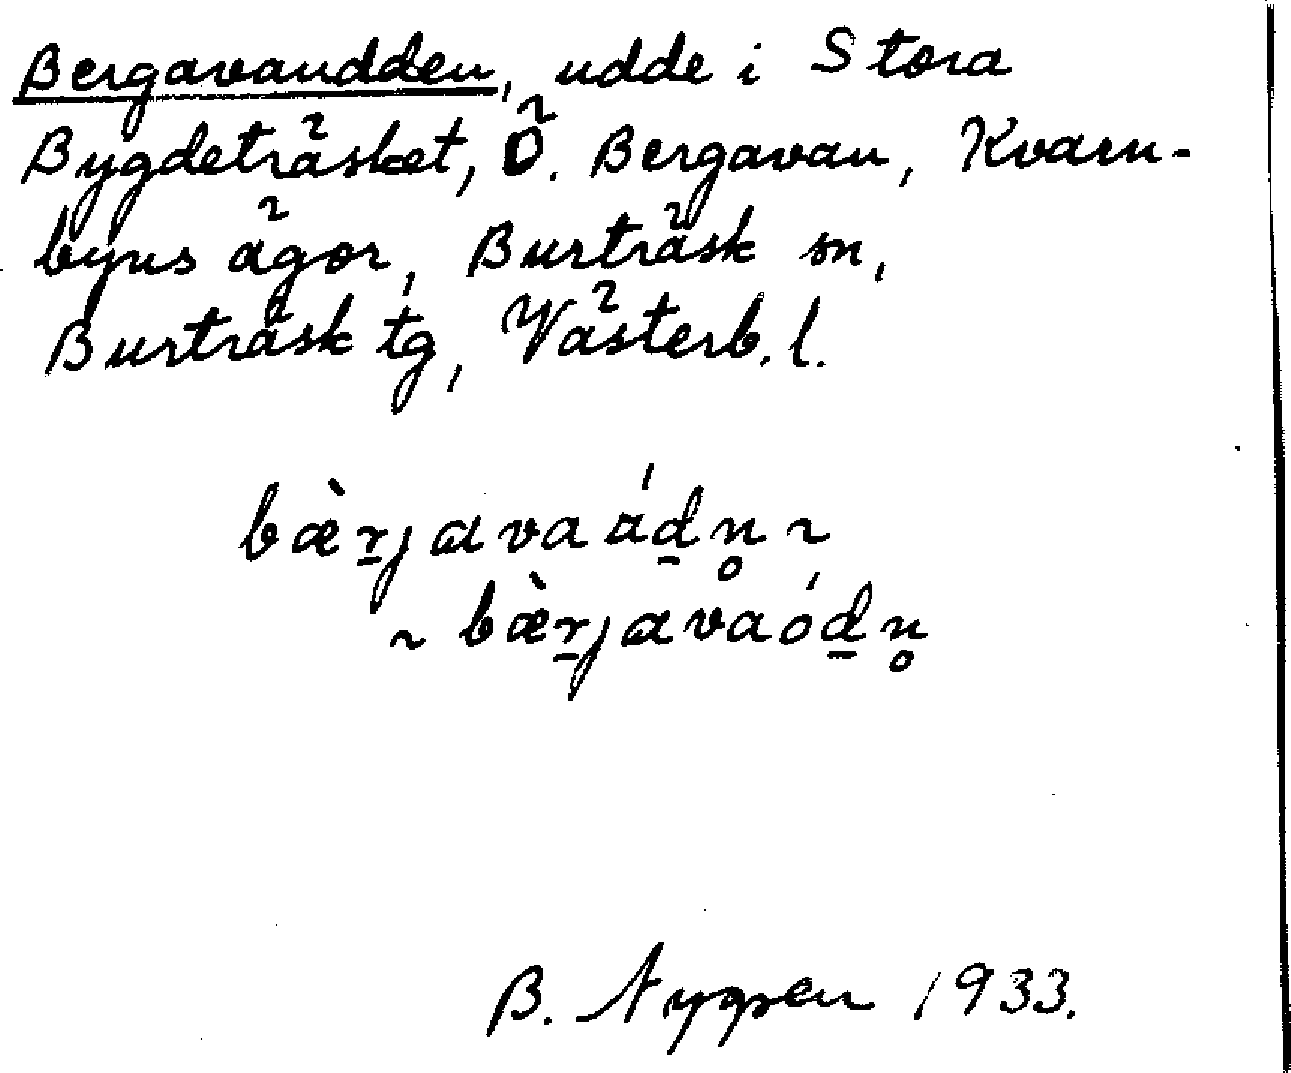 Bergavanudden, udde i Stora
Bygdeträsket, Ö. Bergavan, Kvarn-
byns ägor, Burträsk sn,
Burträsk tg, Västerb. l.
bæ̀r̠javaád̠n̥ ~
~ bæ̀r̠javaód̠n̥
B. Nygren 1933.